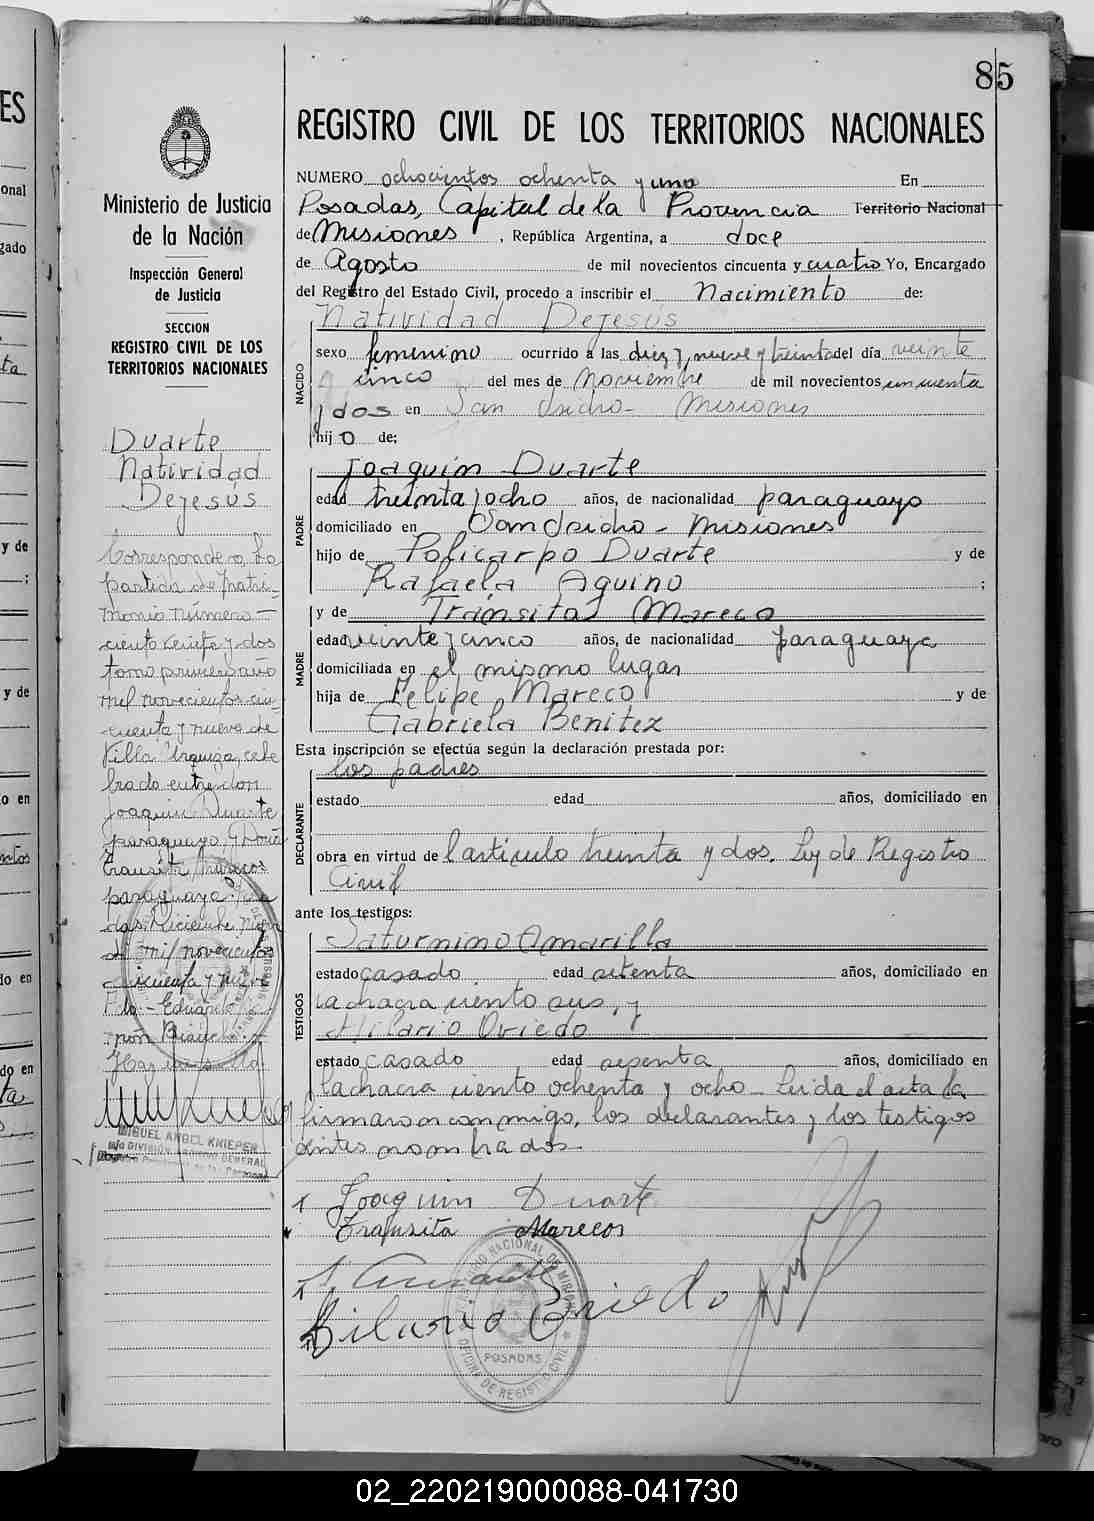 85
REGISTRO CIVIL DE LOS TERRITORIOS NACIONALES
Ministerio de Justicia
de la Nación
Inspección General
de Justicia
SECCION
REGISTRO CIVIL DE LOS
TERRITORIOS NACIONALES
Duarte
Natividad
Dejesús
Corresponde la
partida de matri-
monio número
ciento veinte y dos
tomo primero año
mil novecientos cin-
cuenta y nueve de
Villa Urquiza, cele
brado entre don
Joaquin Duarte
paraguayo y Doña
Transita Marecos
paraguaya
mil novecientos
cincuenta y nueve
MIGUEL ANGEL KNIEPER
NUMERO ochocientos ochenta y uno En
Posadas, Capital de la Provincia Territorio Nacional
de Misiones, República Argentina, a doce
de Agosto de mil novecientos cincuenta y cuatro Yo, Encargado
del Registro del Estado Civil, procedo a inscribir el Nacimiento de:
NACIDO
Natividad Dejesús
sexo femenino ocurrido a las diez y nueve y treinta del día veinte
y cinco del mes de Noviembre de mil novecientos cincuenta
y dos en San Isidro - Misiones
hijo de:
PADRE
Joaquin Duarte
edad treinta y ocho años, de nacionalidad paraguayo
domiciliado en San Isidro - Misiones
hijo de Policarpo Duarte y de
Rafaela Aquino ;
MADRE
y de Tránsita Mareco
edad veinte y cinco años, de nacionalidad paraguaya
domiciliada en el mismo lugar
hija de Felipe Mareco y de
Gabriela Benitez
Esta inscripción se efectúa según la declaración prestada por:
DECLARANTE
los padres
estado edad años, domiciliado en
obra en virtud de l artículo treinta y dos, Ley de Registro
Civil
ante los testigos:
TESTIGOS
Saturnino Amarilla
estado casado edad setenta años, domiciliado en
la chacra ciento seis, y
Hilario Oviedo
estado casado edad sesenta años, domiciliado en
la chacra ciento ochenta y ocho - Leida el acta la
firmaron conmigo, los declarantes y los testigos
antes nombrados
Joaquin Duarte
Transita Marecos
Hilario Oviedo
POSADAS
OFICINA DE REGISTRO CIVIL
02_220219000088-041730